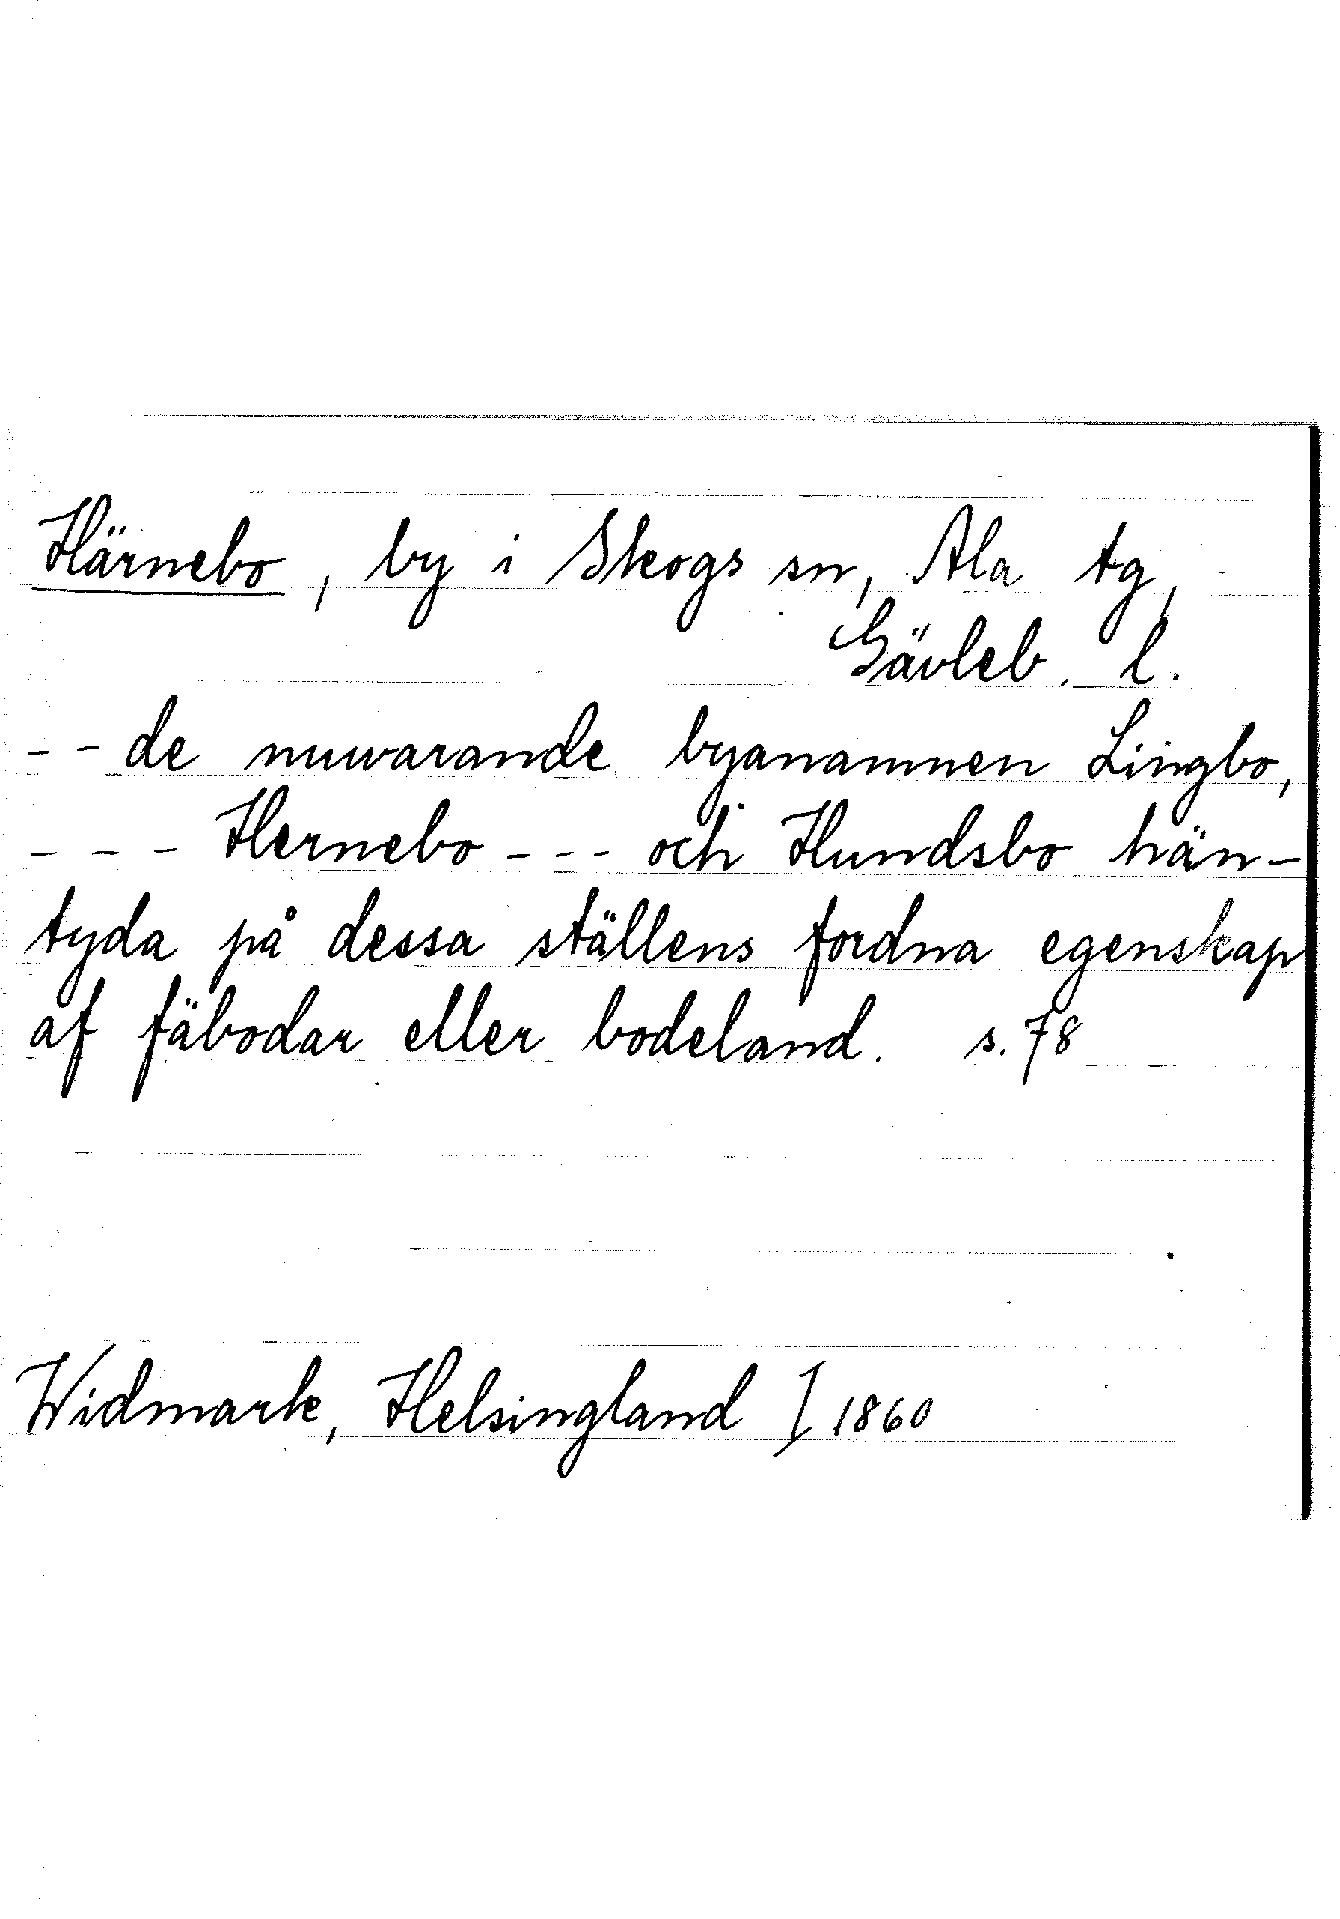 Härnebo, by i Skogs sn, Ala tg,
Gävleb. l.
- - de nuwarande byanamnen Lingbo,
- - - Hernebo - - - och Hundsbo hän-
tyda på dessa ställens fordna egenskap
af fäbodar eller bodeland. s. 78
Widmark, Helsingland I 1860